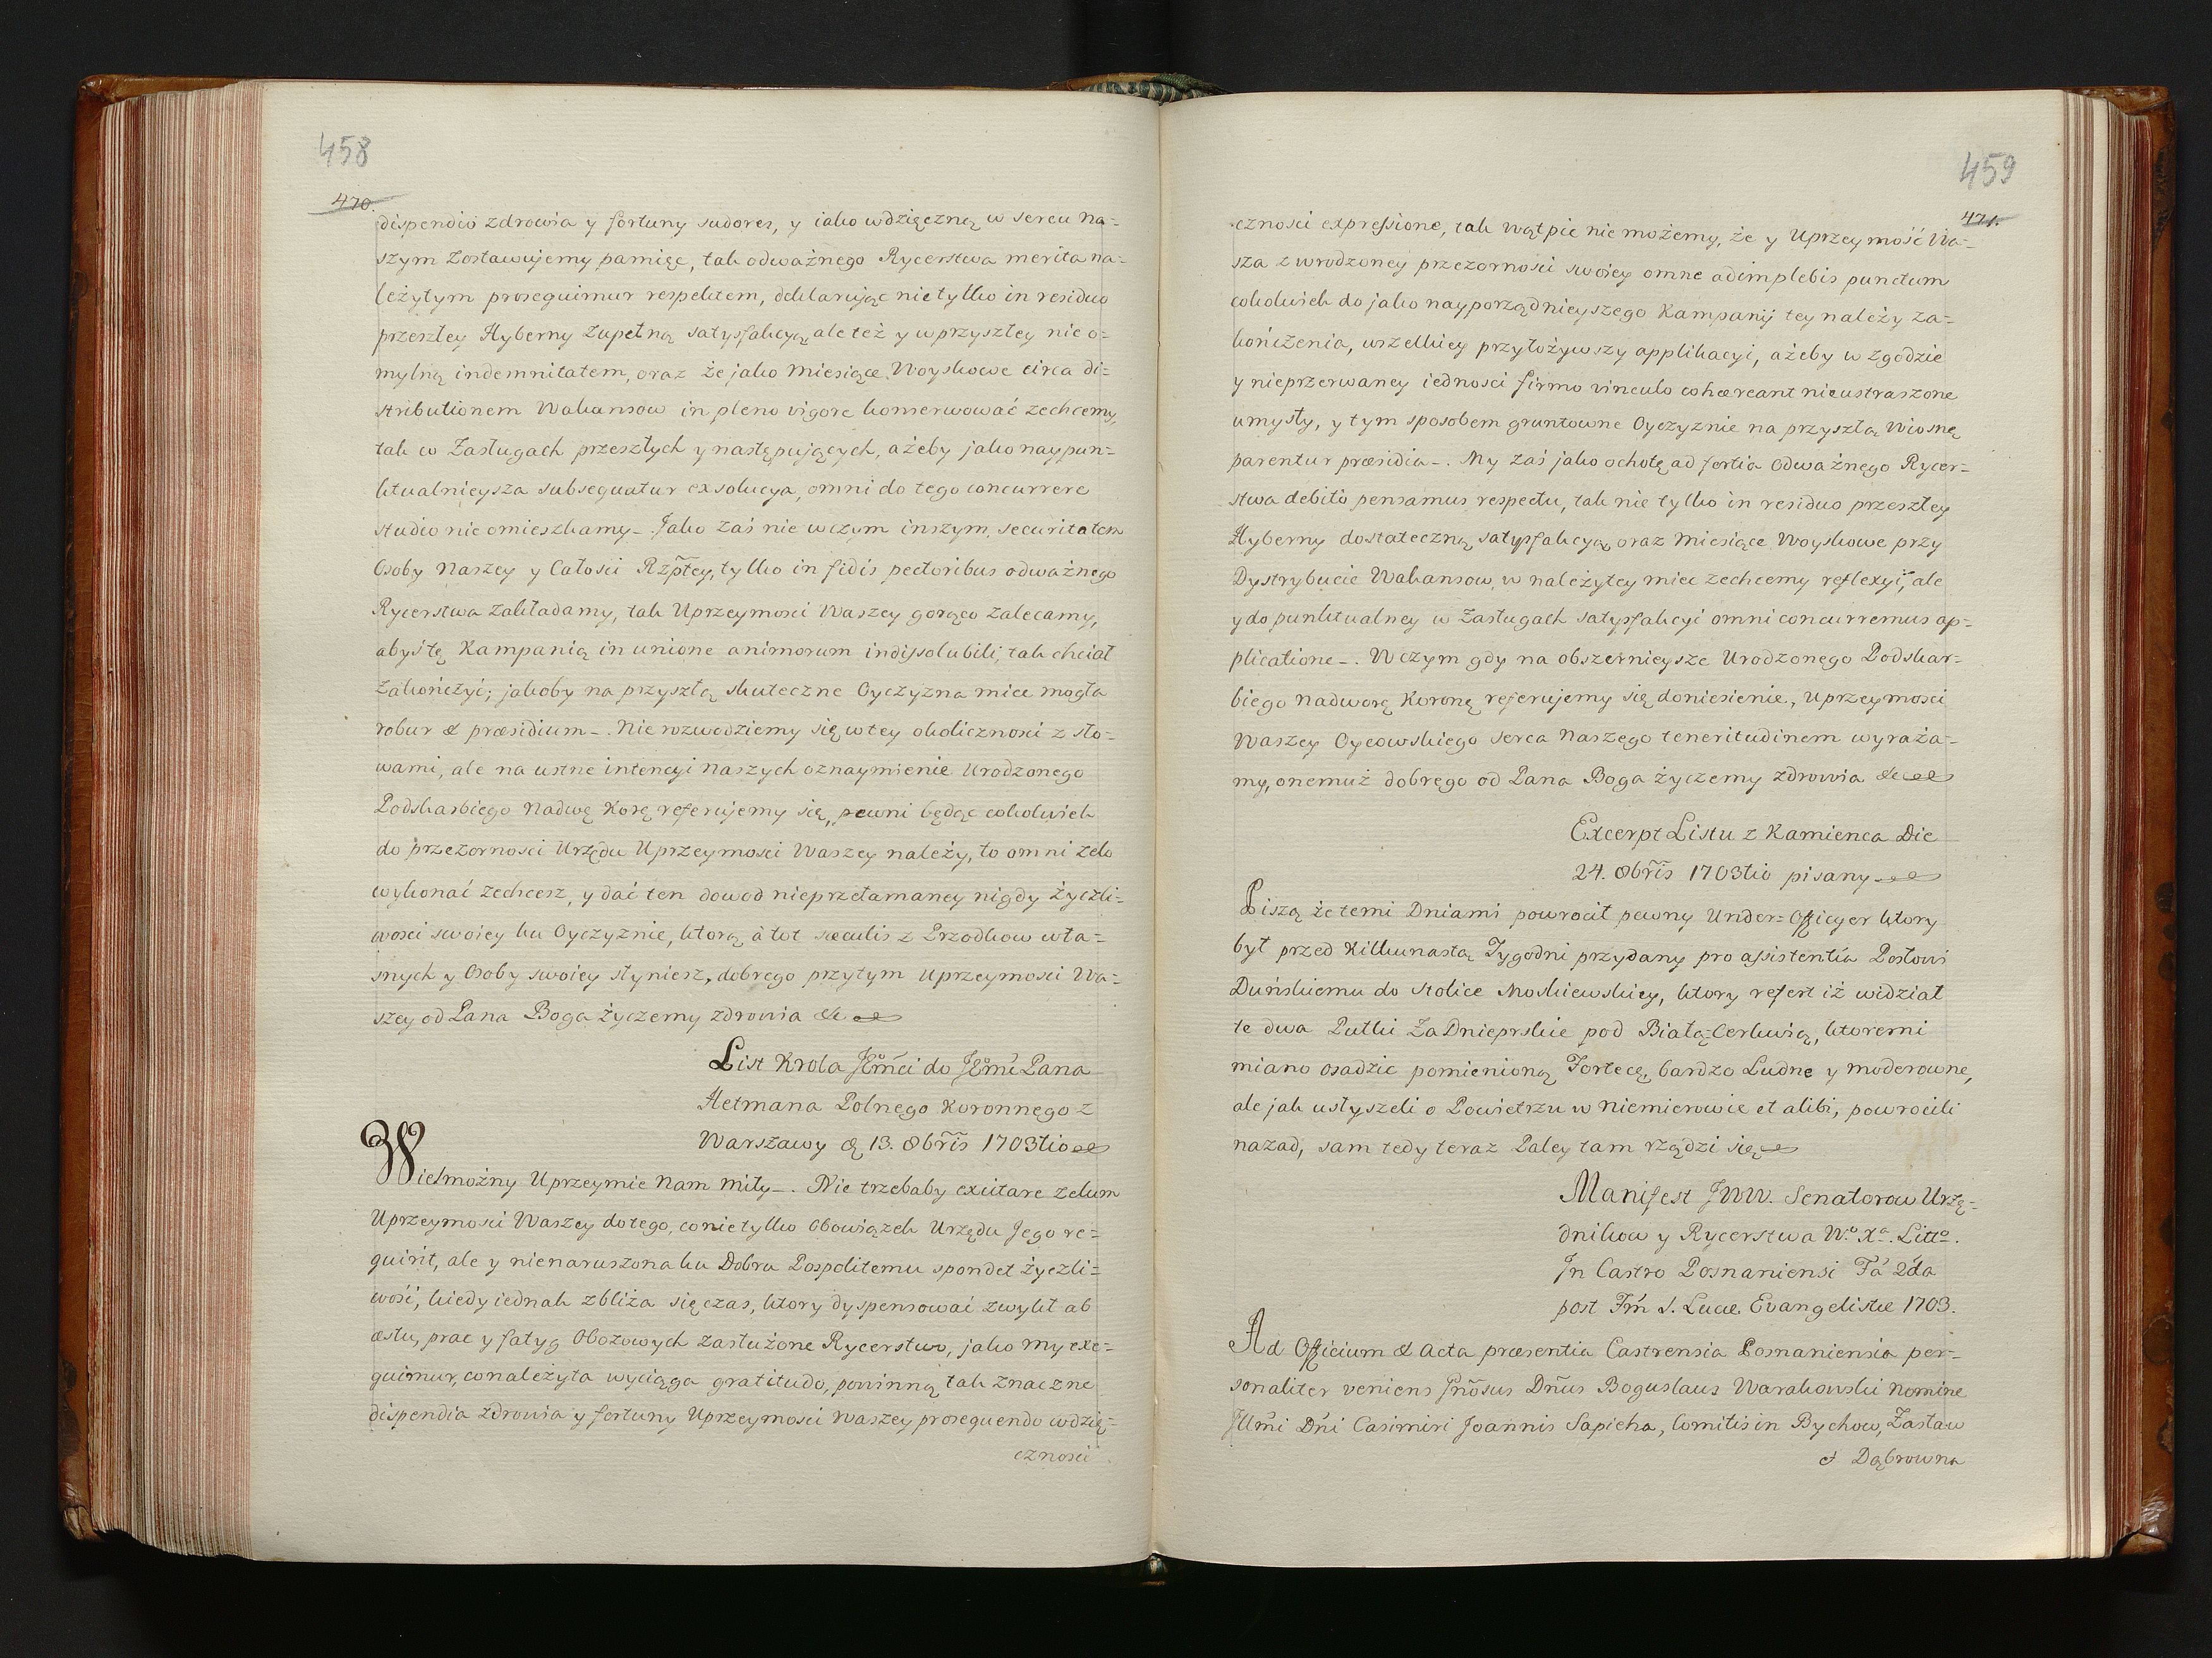 458
470.
dispendió zdrowia y fortuny sudores, y iako wdzięczną w sercu na=
szym zostawujemy pamięc, tak odważnego Rycerstwa merita na=
leżytym prosequimur respektem, deklarując nietylko in residuo
przeszłey Hyberny zupełną satysfakcyą, ale też y w przyszłey nie o=
mylną indemnitatem, oraz że jako Miesiące Woyskowe circa di=
stributionem Wakansow in pleno vigore konserwować zechcemy,
tak w Zasługach przeszłych y następujących, ażeby jako naypun=
ktualnieysza subsequatur exolucya, omni do tego concurrere
studio nie omieszkamy_. Jako zaś nie w czym inszym, securitatem
Osoby Naszey y Całosci Rzp̃tey, tylko in fidis pectoribus odważnego
Rycerstwa zakładamy, tak Uprzeymosci Waszey gorąco zalecamy,
abyś tę Kampanią in unione animorum indissolubili, tak chciał
zakończyć; jakoby na przyszłą skuteczne Oyczyzna miec mogła
robur & præsidium_. Nie rozwodziemy się w tey okolicznosci z sło=
wami, ale na ustne intencyi Naszych oznaymienie Urodzonego
Podskarbiego Nadwę Korę referujemy się, pewni będąc cokolwiek
do przezornosci Urzędu Uprzeymosci Waszey należy, to omni zelo
wykonać zechcesz, y dać ten dowod nieprzełamaney nigdy życzli=
wosci swoiey ku Oyczyznie, ktorą à tot sæculis z Przodkow wła=
snych y Osoby swoiey słyniesz, dobrego przytym Uprzeymosci Wa=
szey od Pana Boga życzemy zdrowia &c
List Krola JEm̃ci do JEm̃i Pana
Hetmana Polnego Koronnego z
Warszawy ą 13. 8br̃is 1703tio
Wielmożny Uprzeymie Nam Miły_. Nie trzebaby excitare zelum
Uprzeymosci Waszey do tego, co nietylko Obowiązek Urzędu Jego re=
quirit, ale y nienaruszona ku Dobru Pospolitemu spondet życzli=
wość, kiedy iednak zbliża się czas, ktory dyspensować zwykł ab
æstu, prac y fatyg Obozowych zasłużone Rycerstwo, jako My exe=
quimur, co należyta wyciąga gratitudo, powinną tak znaczne
dispendia zdrowia y fortuny Uprzeymosci Waszey prosequendo wdzię=
cznosci
459
471.
cznosci expressione, tak wątpic nie możemy, że y Uprzeymość Wa=
sza z wrodzoney przezornosci swoiey omne adimplebis punctum
cokolwiek do jako nayporządnieyszego Kampanij tey należy za=
kończenia, wszelkiey przyłożywszy applikacyi, ażeby w zgodzie
y nieprzerwaney iednosci firmo vinculo cohæreant nieustraszone
umysły, y tym sposobem gruntowne Oyczyznie na przyszłą Wiosnę
parentur præsidia_. My zaś jako ochotę ad fortia Odważnego Rycer=
stwa debitò pensamus respectu, tak nie tylko in residuo przeszłey
Hyberny dostateczną satysfakcyą, oraz Miesiące Woyskowe przy
Dystrybucie Wakansow, w należytey miec zechcemy reflexyi, ale
y do punktualney w Zasługach satysfakcyi omni concurremus ap=
plicatione_. W czym gdy na obszernieysze Urodzonego Podskar=
biego Nadworę Koronę referujemy się doniesienie, Uprzeymosci
Waszey Oycowskiego serca Naszego teneritudinem wyraża=
my, onemuż dobrego od Pana Boga życzemy zdrowia &c
Excerpt Listu z Kamienca Die
24. 8br̃is 1703tio pisany
Piszą że temi Dniami powrocił pewny Under=Officyer ktory
był przed Kilkunastą Tygodni przydany pro assistentia Posłowi
Duńskiemu do Stolice Moskiewskiey, ktory refert iż widział
te dwa Pułki ZaDnieprskie pod Białą Cerkwią, ktoremi
miano osadzic pomienioną Fortecę, bardzo Ludne y moderowne,
ale jak usłyszeli o Powietrzu w Niemierowie et alibi, powrocili
nazad, sam tedy teraz Paley tam rządzi się
Manifest JWW. Senatorow Urzę=
dnikow y Rycerstwa W.º X.ª Litto.
In Castro Posnaniensi Fa 2da
post Fm̃ S. Lucæ Evangelistæ 1703.
Ad Officium & Acta præsentia Castrensia Posnaniensia per=
sonaliter veniens Gñosus Dñus Boguslaus Warakowski nomine
Illm̃i Dñi Casimiri Joannis Sapieha, Comitis in Bychow, Zasław
et Dąbrowna